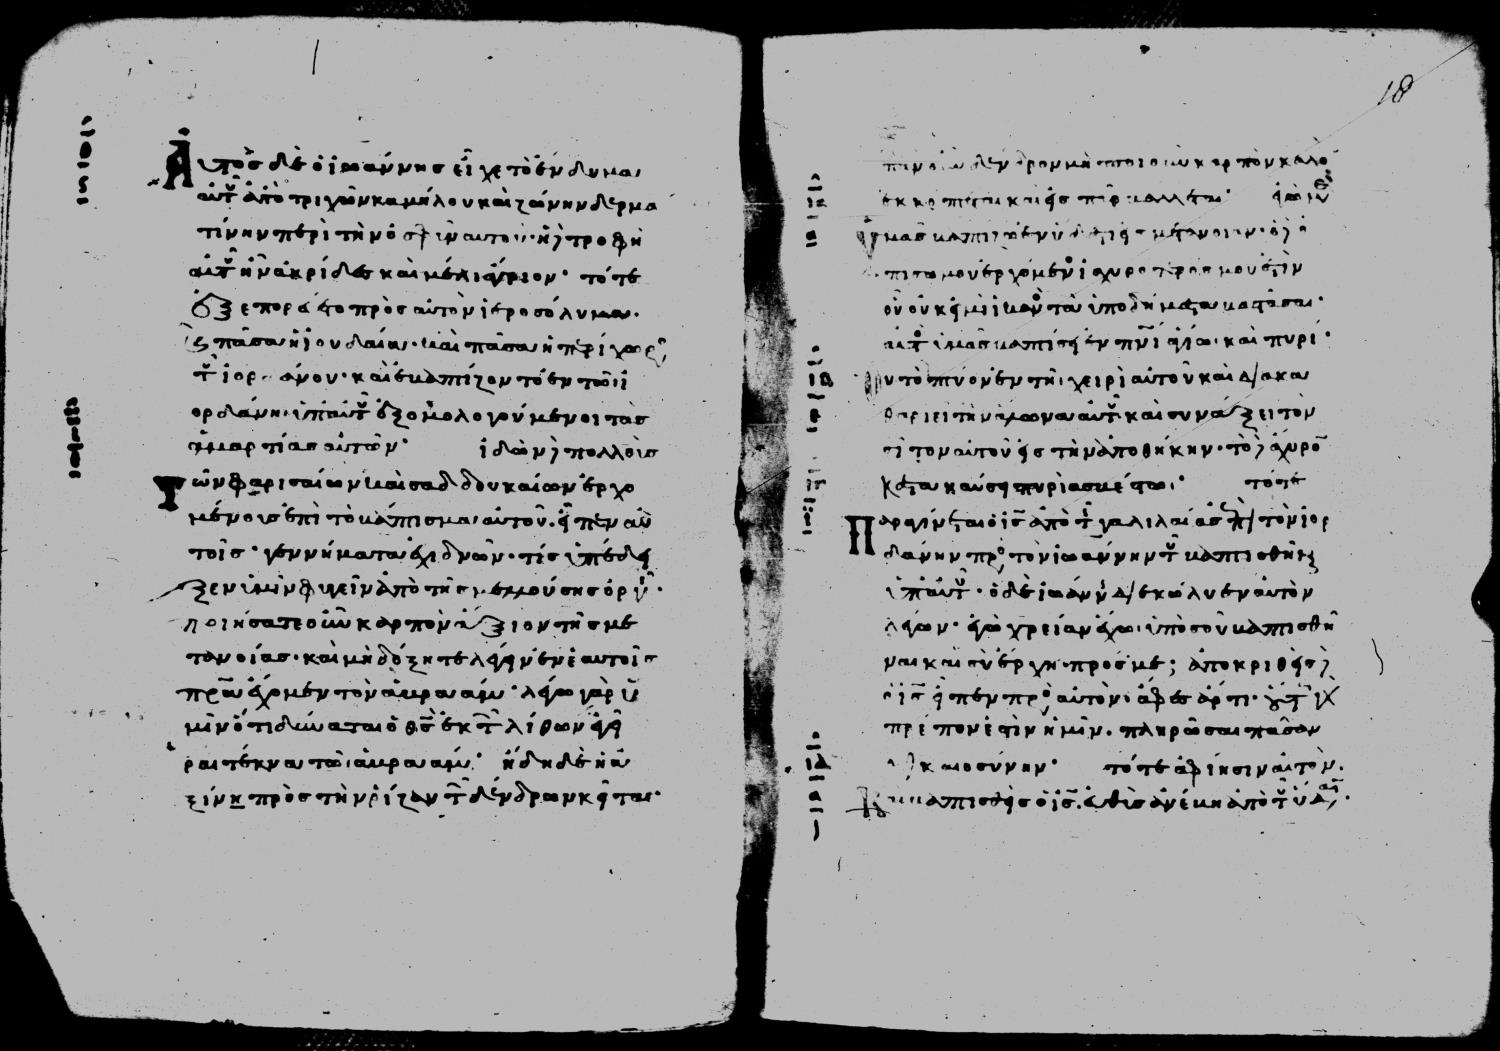 Αυτος δὲ ὁ ἰωάννης εἶχε τὸ ἔνδυμα
αὐτ ἀπὸ τριχῶν καμήλου καὶ ζώνην δερμα
τίνην περὶ τὴν ὀσφῦν αυτου· ἡ τροφὴ
αὐτ ἦν ἀκρίδες καὶ μέλι ἄγριον· τότε
ἐξεπορεύετο πρὸς αὐτὸν ἱεροσόλυμα·
πᾶσα ἡ ἰουδαία· καὶ πᾶσα ἡ περίχωρ
τ ἰορδάνου· καὶ ἐβαπτίζοντο ἐν τῶ ἰ
ορδάνη· ὑπ αὐτ ἐξομολογούμενοι τὰς
ἁμαρτίας αὐτῶν· ἰδὼν πολλοὺς
Τῶν φαρισαίων καὶ σαδδουκαίων ἐρχο
μένους ἐπὶ τὸ βάπτισμα αὐτοῦ· εἶπεν αὐ
τοῖς· γεννήματα ἐχιδνῶν· τίς ὑπέδει
ξεν ὑμῖν φυγεῖν ἀπὸ τῆς μελλούσης ὀργ·
ποιήσατε οὖν καρπὸν ἄξιον τῆς με
τανοίας· καὶ μὴ δόξητε λέγειν ἐν ἑαυτοῖς
πρα ἔχομεν τὸν ἀβραάμ· λέγω γὰρ ὑ
μῖν ὅτι δύναται ὁ θς ἐκ τ λίθων ἐγεῖ
ραι τέκνα τῶ ἀβραάμ· ἤδη δὲ ἡ ἀ
ξίνη πρὸς τὴν ρίζαν τ δένδρων κεῖται·
18
πᾶν οὖν δένδρον μὴ ποιοῦν καρπὸν καλὸ
ἐκκόπτεται καὶ εἰς πῦρ βάλλεται· ἐγὼ
μᾶς βαπτίζω ἐν ὕδατι εἰς μετάνοιαν· ὁ
ὀπίσω μου ἐρχόμεν ἰσχυρότερός μου ἐστὶν
οὗ οὐκ εἰμὶ ἱκαν τὰ ὑποδήματα βαστάσαι·
αὐτ ὑμᾶς βαπτίσει ἐν πνι ἁγίω· καὶ πυρί·
οὗ τὸ πτύον ἐν τῆ χειρὶ αὐτοῦ καὶ διακα
θαριεῖ τὴν ἅλωνα αὐτ καὶ συνάξει τὸν
σῖτον αὐτοῦ εἰς τὴν ἀποθήκην· τὸ ἄχυρο
κατακαύσει πυρὶ ἀσβέστω· τότε
Παραγίνεται ὁ ις ἀπὸ τ γαλιλαίας ἐπὶ τὸν ἰορ
δάνην πρ τὸν ἰωάννην τ βαπτισθῆναι
ὑπ αὐτ· ὁ δὲ ἰωάνν διεκώλυεν αὐτὸν
λέγων· ἐγὼ χρείαν ἔχω· ὑπὸ σοῦ βαπτισθῆ
ναι καὶ σὺ ἔρχη πρός με; ἀποκριθεὶς
ὁ ις εἶπεν πρ αὐτὸν· ἄφες ἄρτι·
πρέπον ἐστὶν ἡμῖν· πληρῶσαι πᾶσαν
δικαιοσύνην· τότε ἀφίησιν αὐτὸν·
βαπτισθεὶς ὁ ις· εὐθὺς ἀνέβη ἀπὸ τ ὕδατ·